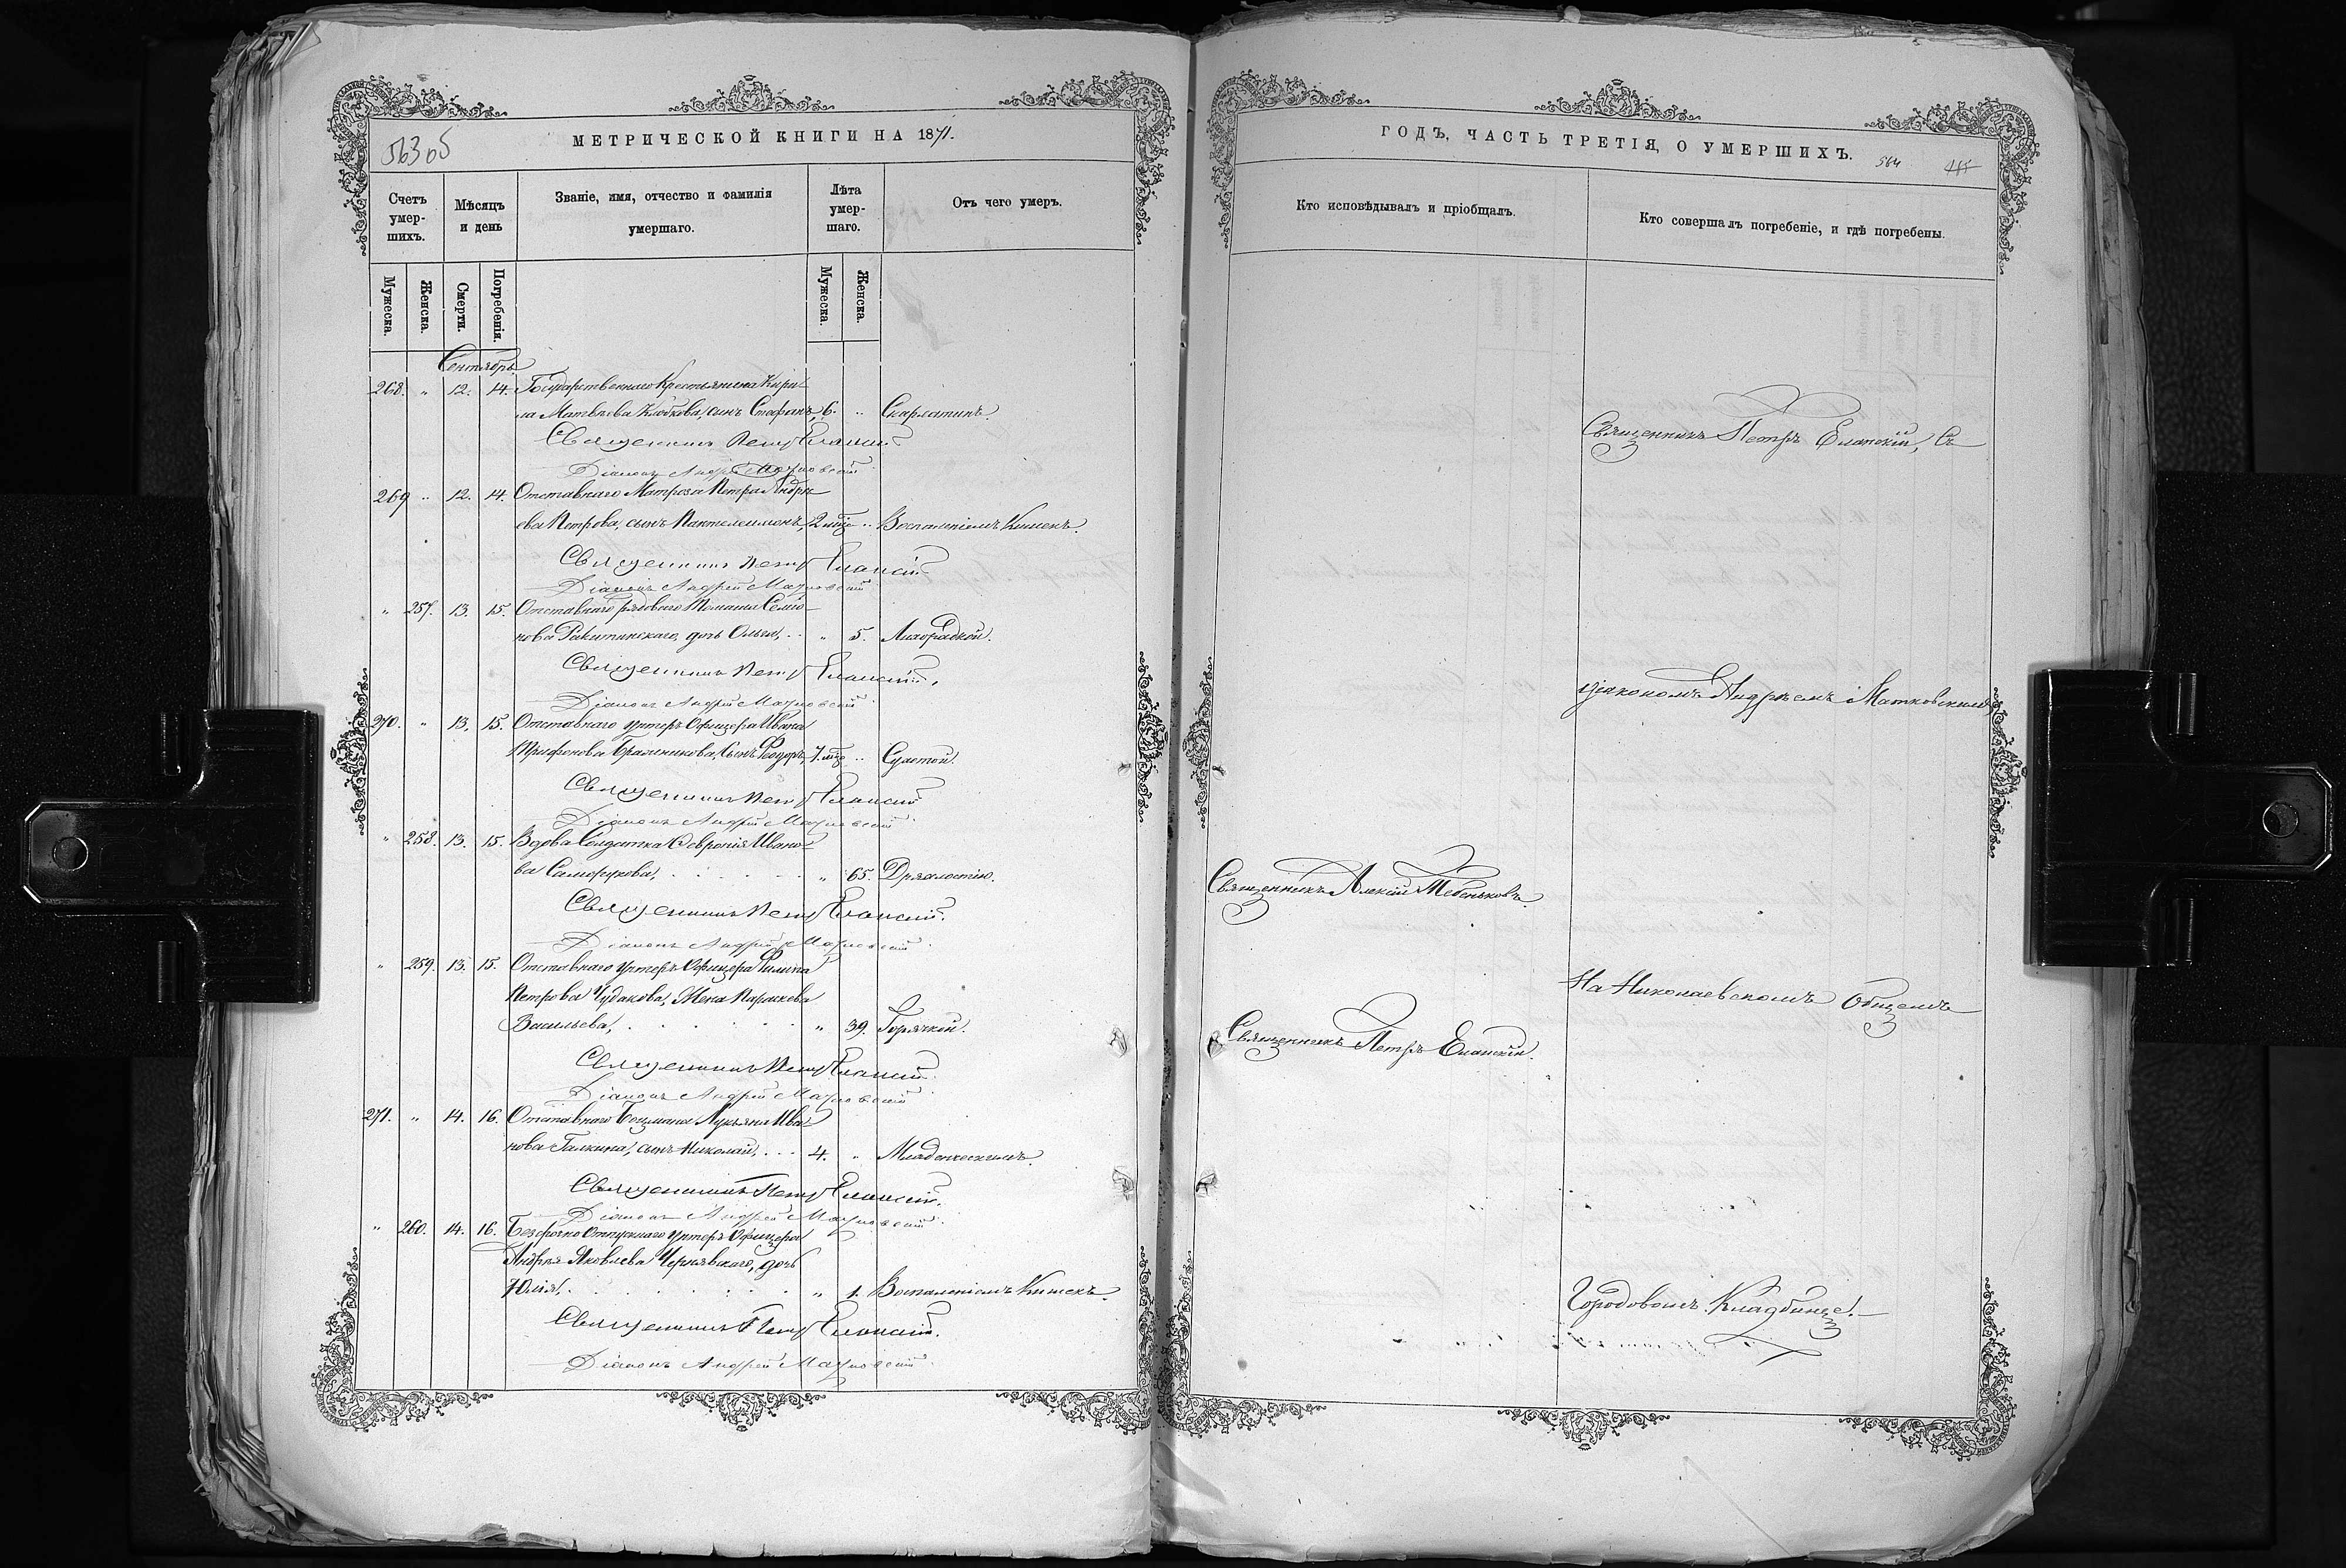 563 об
МЕТРИЧЕСКОЙ КНИГИ НА 1871.
Счетъ умер-шихъ.
Мѣсяцъ и день
Званіе, имя, отчество и фамилія умершаго.
Лѣта умер-шаго.
Отъ чего умеръ.
Мужеска.
Женска.
Смерти.
Погребенія.
Мужеска.
Женска.
Сентябрь
268. „ 12. 14. Государственнаго Крестьянина Кири-
ла Матвѣева сынъ Стефанъ, 6. „ Скарлатинъ.
Священникъ Петръ Еланскій
Діаконъ Андрей Матковскій
269 „ 12. 14. Отставнаго Матроза Петра Андре-
ева Петрова, сынъ Пантелеимонъ, 2 мѣс. „ Воспаленіемъ Кишекъ.
Священникъ Петръ Еланскій
Діаконъ Андрей Матковскій
„ 257. 13. 15. Отставнаго рядоваго Томаша Семіо-
нова Ракитинскаго, дочь Ольга, „ 5. Лихорадкой.
Священникъ Петръ Еланскій.
Діаконъ Андрей Матковскій
270. „ 13. 15. Отставнаго унтеръ Офицера Ивана
Трифонова сынъ Ѳеодоръ, 7. мѣс „ Сухотой.
Священникъ Петръ Еланскій
Діаконъ Андрей Матковскій
„ 258. 13. 15. Вдова Солдатка Ѳевронія Ивано-
ва „ 65. Дряхлостію.
Священникъ Петръ Еланскій.
Діаконъ Андрей Матковскій.
„ 259. 13. 15. Отставнаго унтеръ Офицера Филипа
Петрова Чудакова, Жена Параскева
Васильева, „ 39. Горячкой.
Священникъ Петръ Еланскій.
Діаконъ Андрей Матковскій
271. „ 14. 16. Отставнаго Боцмана Лукьяна Ива-
нова Галкина, сынъ Николай, 4. „ Младенческимъ.
Священникъ Петръ Еланскій.
Діаконъ Андрей Матковскій.
„ 260. 14. 16. Безсрочно Отпускнаго унтеръ Офицера
Андрея Яковлева Чернявскаго, дочь
Юлія, „ 1. Воспаленіемъ Кишекъ.
Священникъ Петръ Еланскій.
Діаконъ Андрей Матковскій.
ГОДЪ, ЧАСТЬ ТРЕТІЯ, О УМЕРШИХЪ.
564
Кто исповѣдывалъ и пріобщалъ.
Кто совершалъ погребеніе, и гдѣ погребены.
Священникъ Петръ Еланскій, съ
діакономъ Андреемъ Матковскимъ
Священникъ Алексій Тебеньковъ.
На Николаевскомъ Общемъ
Священникъ Петръ Еланскій.
Городовомъ Кладбище.